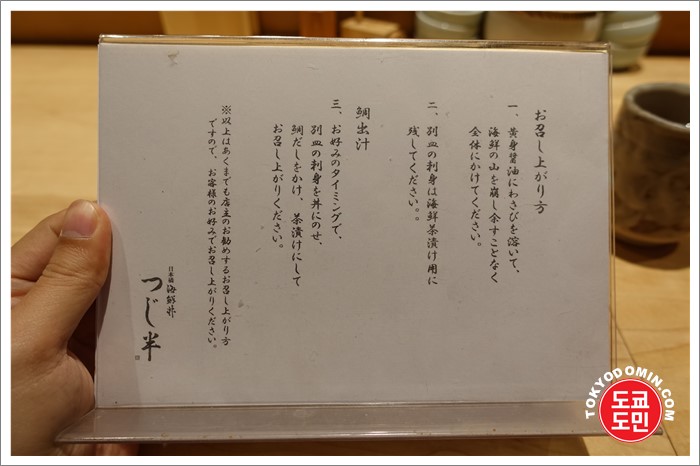 お召し上がり方
一、黄身醤油にわさびを溶いて、
海鮮の山を崩し余すことなく
全体にかけてください。
二、別皿の刺身は海鮮茶漬け用に
残してください。。
鯛出汁
三、お好みのタイミングで、
別皿の刺身を丼にのせ、
鯛だしをかけ、茶漬けにして
お召し上がりください。
※以上はあくまでも店主のお勧めするお召し上がり方
ですので、お客様のお好みでお召し上がりください。
日本橋 海鮮丼
つじ半
TOKYODOMIN.COM
도쿄
도민